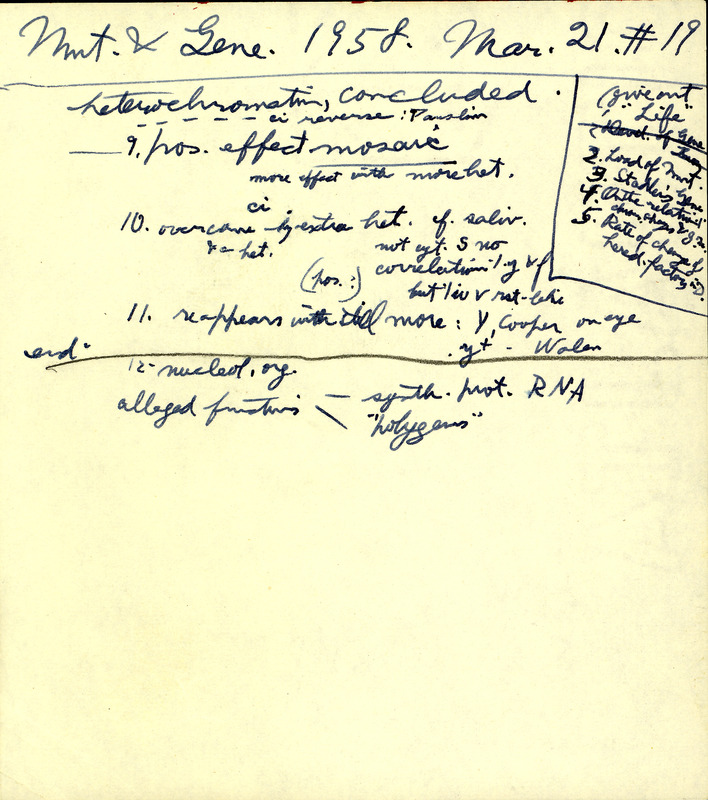 Mut. & Gene. 1958. Mar. 21. #19
heterochromatin, concluded.
ci reverse: Panshin
9. pos. effect mosaic
more effect with more het.
ci
10. overcome by extra het. cf. saliv.
& = het.
not cyt. S no
correlation
(pos.:)
but
11. reappears with still more: Y, Cooper on eye
yt - Walen
end
12. nucleol. org.
alleged functions — synth. prot. RNA
"polygenes"
(give out
1. "Life"
2. Load of Mut.
3. Stadler's
4. On the relation
chrom. changes & g. m.
5. Rate of change of
hered. factors